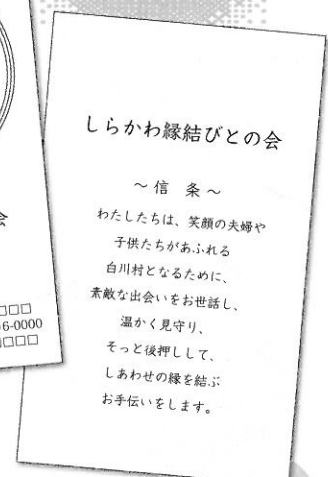 しらかわ縁結びとの会
～信 条～
わたしたちは、笑顔の夫婦や
子供たちがあふれる
白川村となるために、
素敵な出会いをお世話し、
温かく見守り、
そっと後押しして、
しあわせの縁を結ぶ
お手伝いをします。
会
□□
6-0000
□□□□